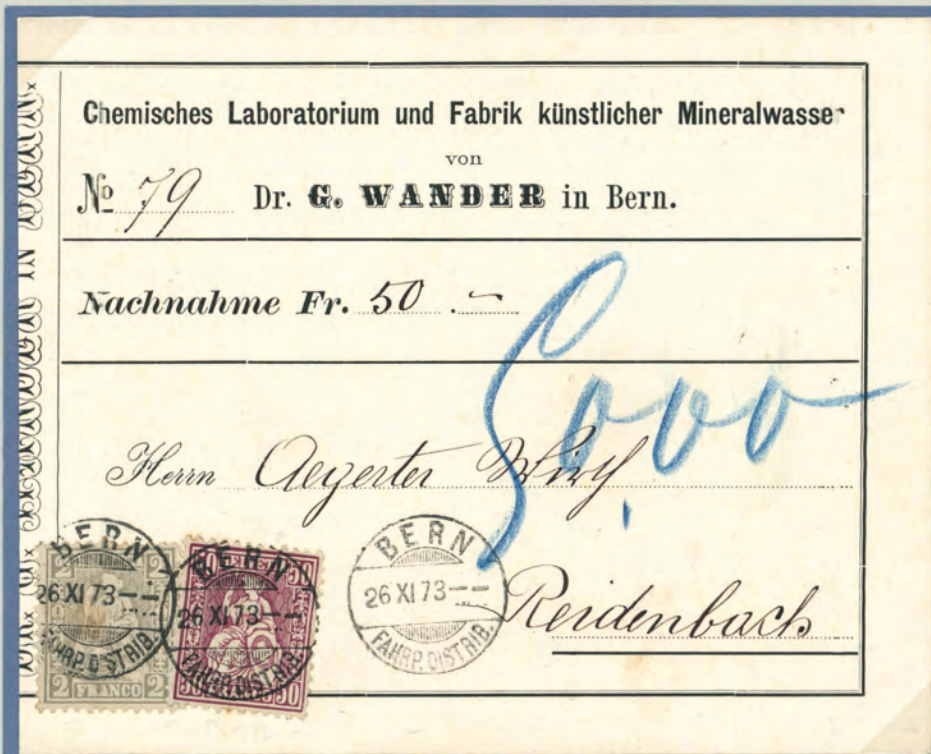 Chemisches Laboratorium und Fabrik künstlicher Mineralwasser
von
No 79 Dr. G. WANDER in Bern.
Nachnahme Fr. 50.-
50,00
Herrn Aegerter Wirth
Reidenbach
BERN
26 XI 73
FAHRP. DISTRIB.
2 FRANCO 2
BERN
26 XI 73
FAHRP. DISTRIB.
50 50
BERN
26 XI 73
FAHRP. DISTRIB.